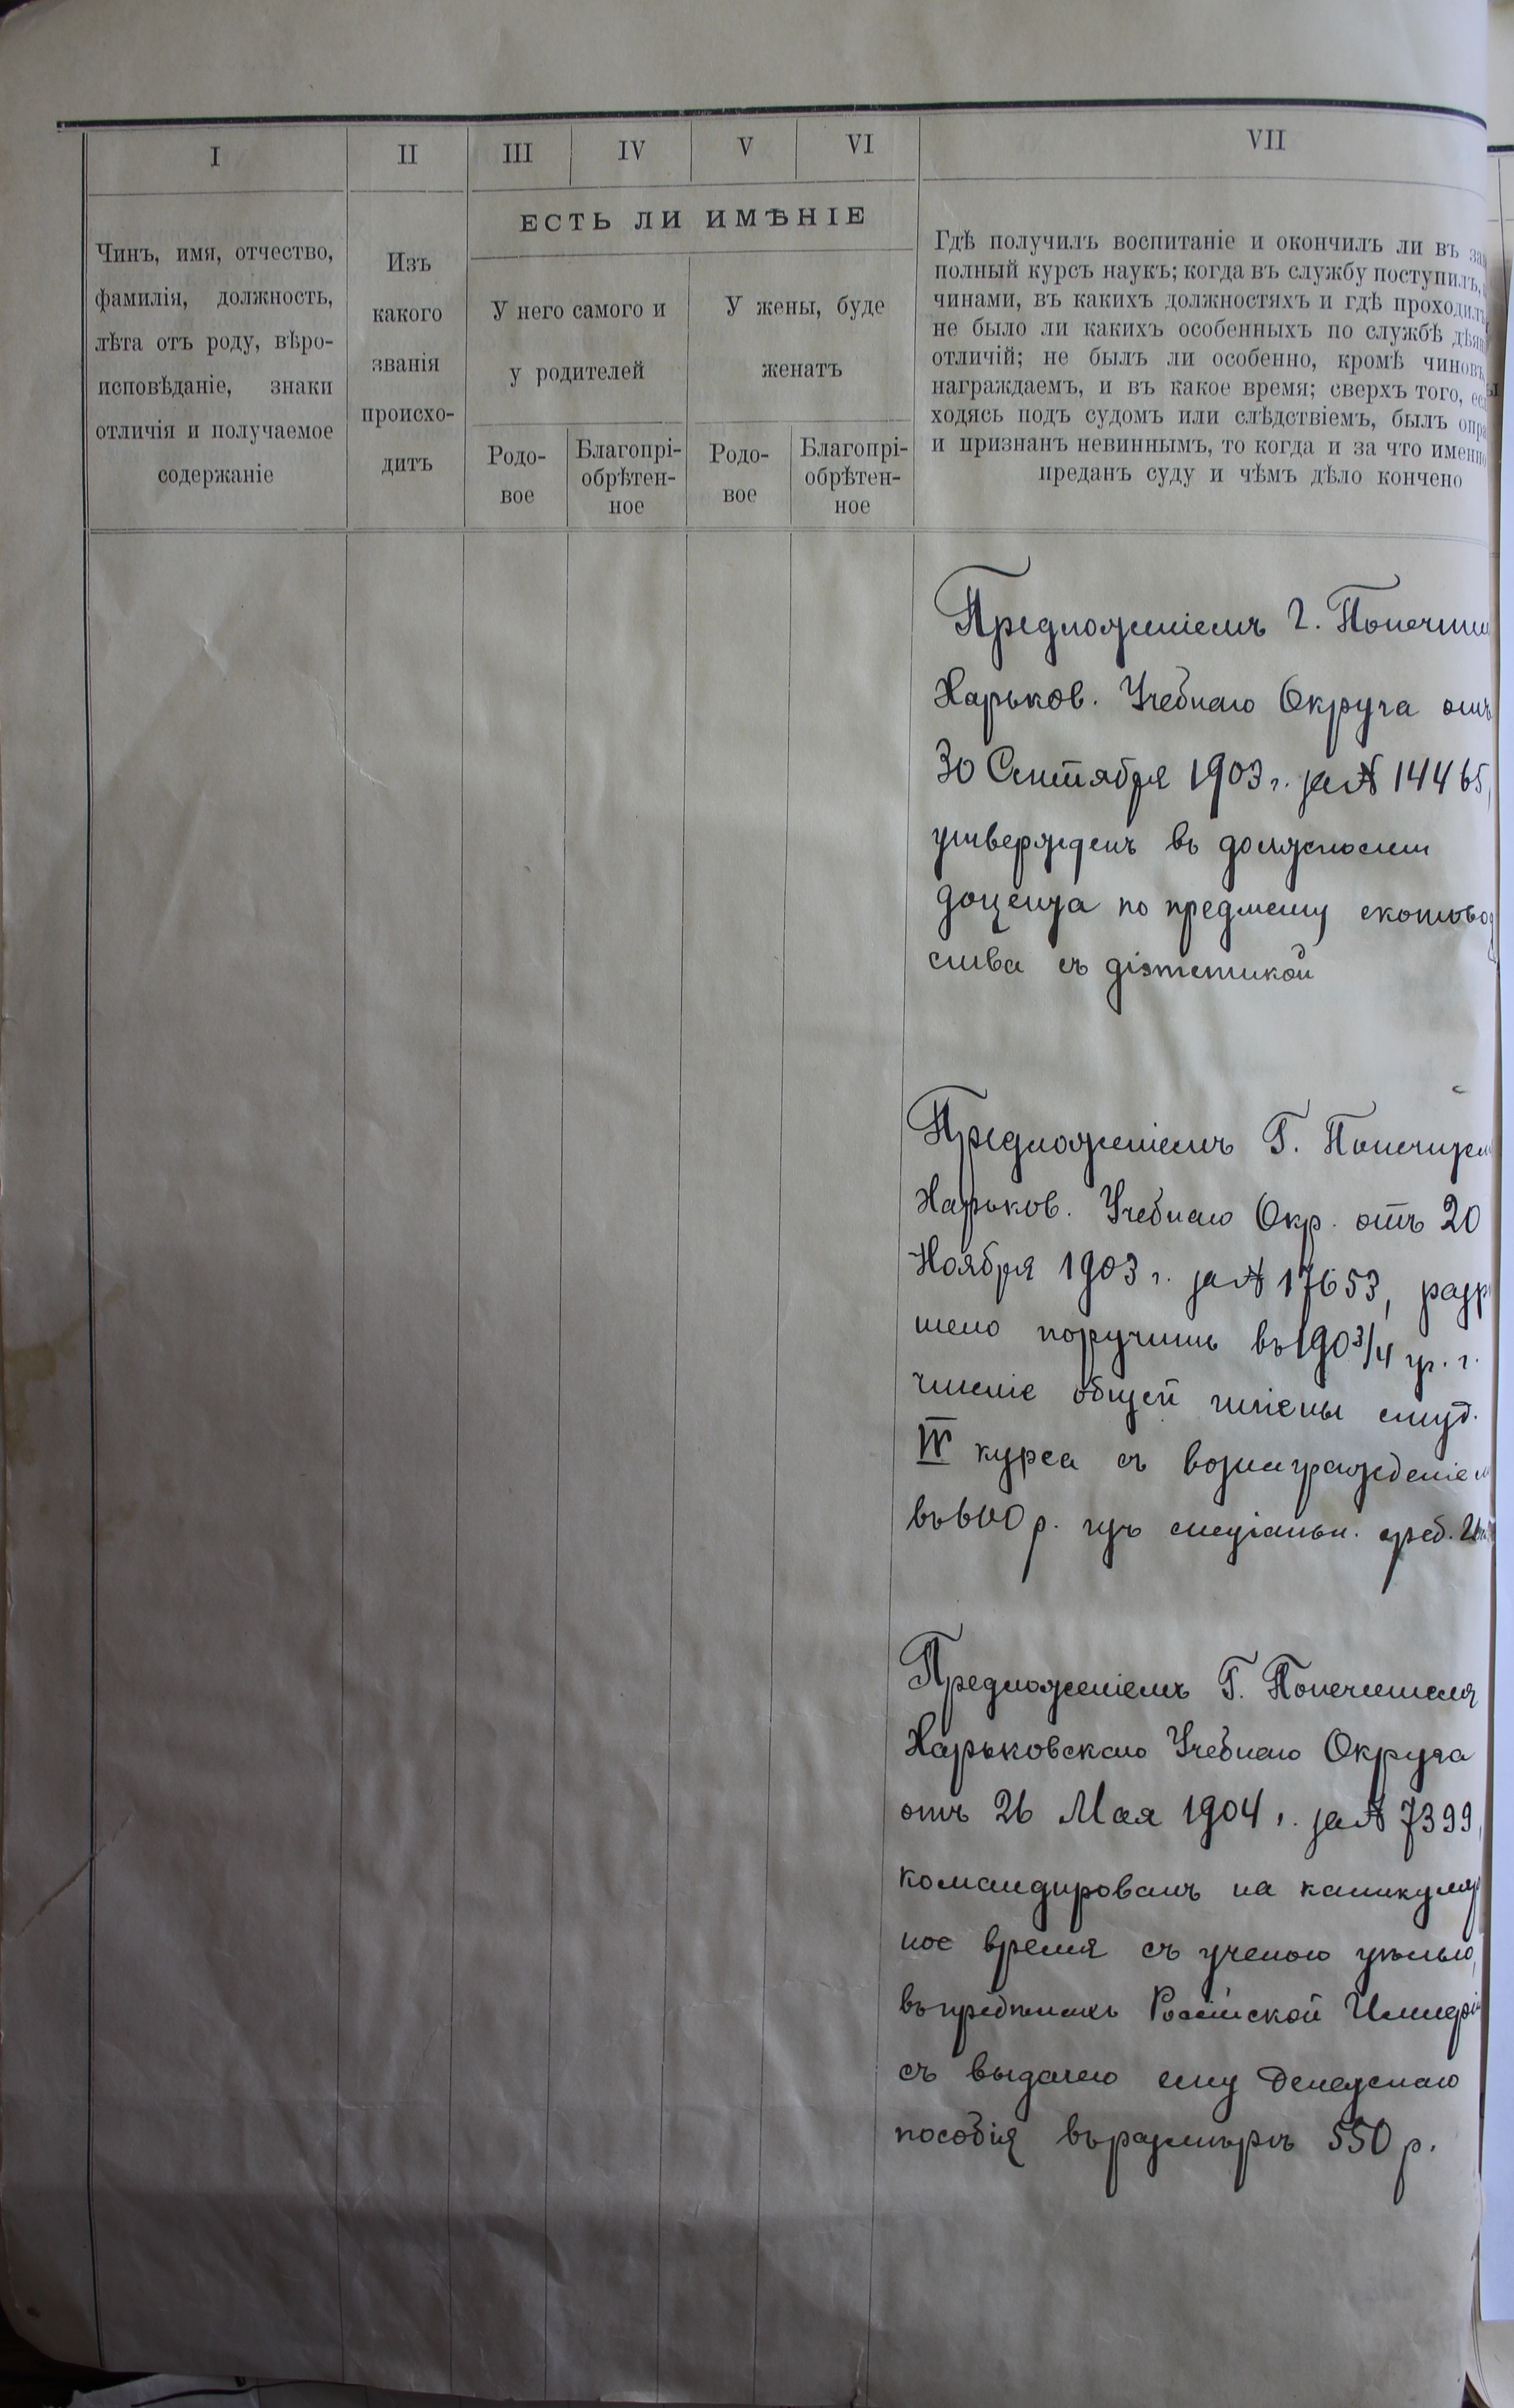 I II III IV V VI VII
Чинъ, имя, отчество,
фамилія, должность,
лѣта отъ роду, вѣро-
исповѣданіе, знаки
отличія и получаемое
содержаніе
Изъ
какого
званія
происхо-
дитъ
ЕСТЬ ЛИ ИМѢНІЕ
У него самого и
у родителей
У жены, буде
женатъ
Родо-
вое
Благопрі-
обрѣтен-
ное
Родо-
вое
Благопрі-
обрѣтен-
ное
Гдѣ получилъ воспитаніе и окончилъ ли въ за
полный курсъ наукъ; когда въ службу поступилъ,
чинами, въ какихъ должностяхъ и гдѣ проходилъ
не было ли какихъ особенныхъ по службѣ дѣя
отличій; не былъ ли особенно, кромѣ чиновъ
награждаемъ, и въ какое время; сверхъ того, ес
ходясь подъ судомъ или слѣдствіемъ, былъ опра
и признанъ невиннымъ, то когда и за что именно
преданъ суду и чѣмъ дѣло кончено
Предложеніемъ Г. Попечи
Харьков. Учебнаго Округа отъ
30 Сентября 1903 г. за № 14465,
утвержденъ въ должности
доцента по предмету скотовод
ства съ діэтетикой
Предложеніемъ Г. Попечител
Харьков. Учебнаго Окр. отъ 20
Ноября 1903 г. за № 17653, разр
шено поручить въ 1903/4 уч. г.
чтеніе общей гигіены студ.
IV курса съ вознагражденіем
въ 600 р. изъ спеціальн. сред. Ин
Предложеніемъ Г. Попечителя
Харьковскаго Учебнаго Округа
отъ 26 Мая 1904 г. за № 7399,
командированъ на каникуляр
ное время съ ученою цѣлью,
въ предѣлахъ Россійской Имперіи
съ выдачею ему денежнаго
пособія въ размѣрѣ 550 р.